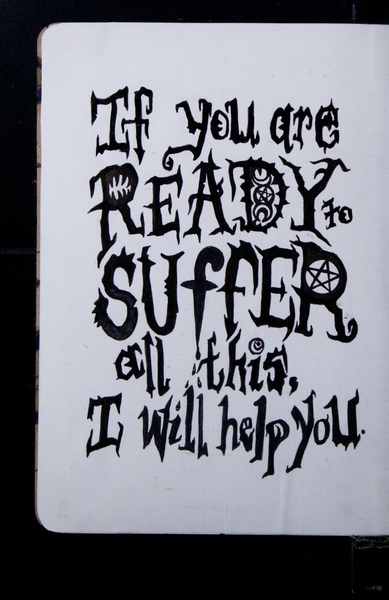 If you are
READY to
SUffER
all this,
I will help you.